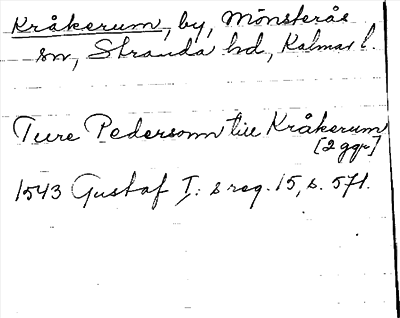 Kråkerum, by, Mönsterås
sn, Stranda hd, Kalmar l.
Ture Pedersonn till Kråkerum
[2 ggr]
1543 Gustaf I: s reg. 15, s. 571.